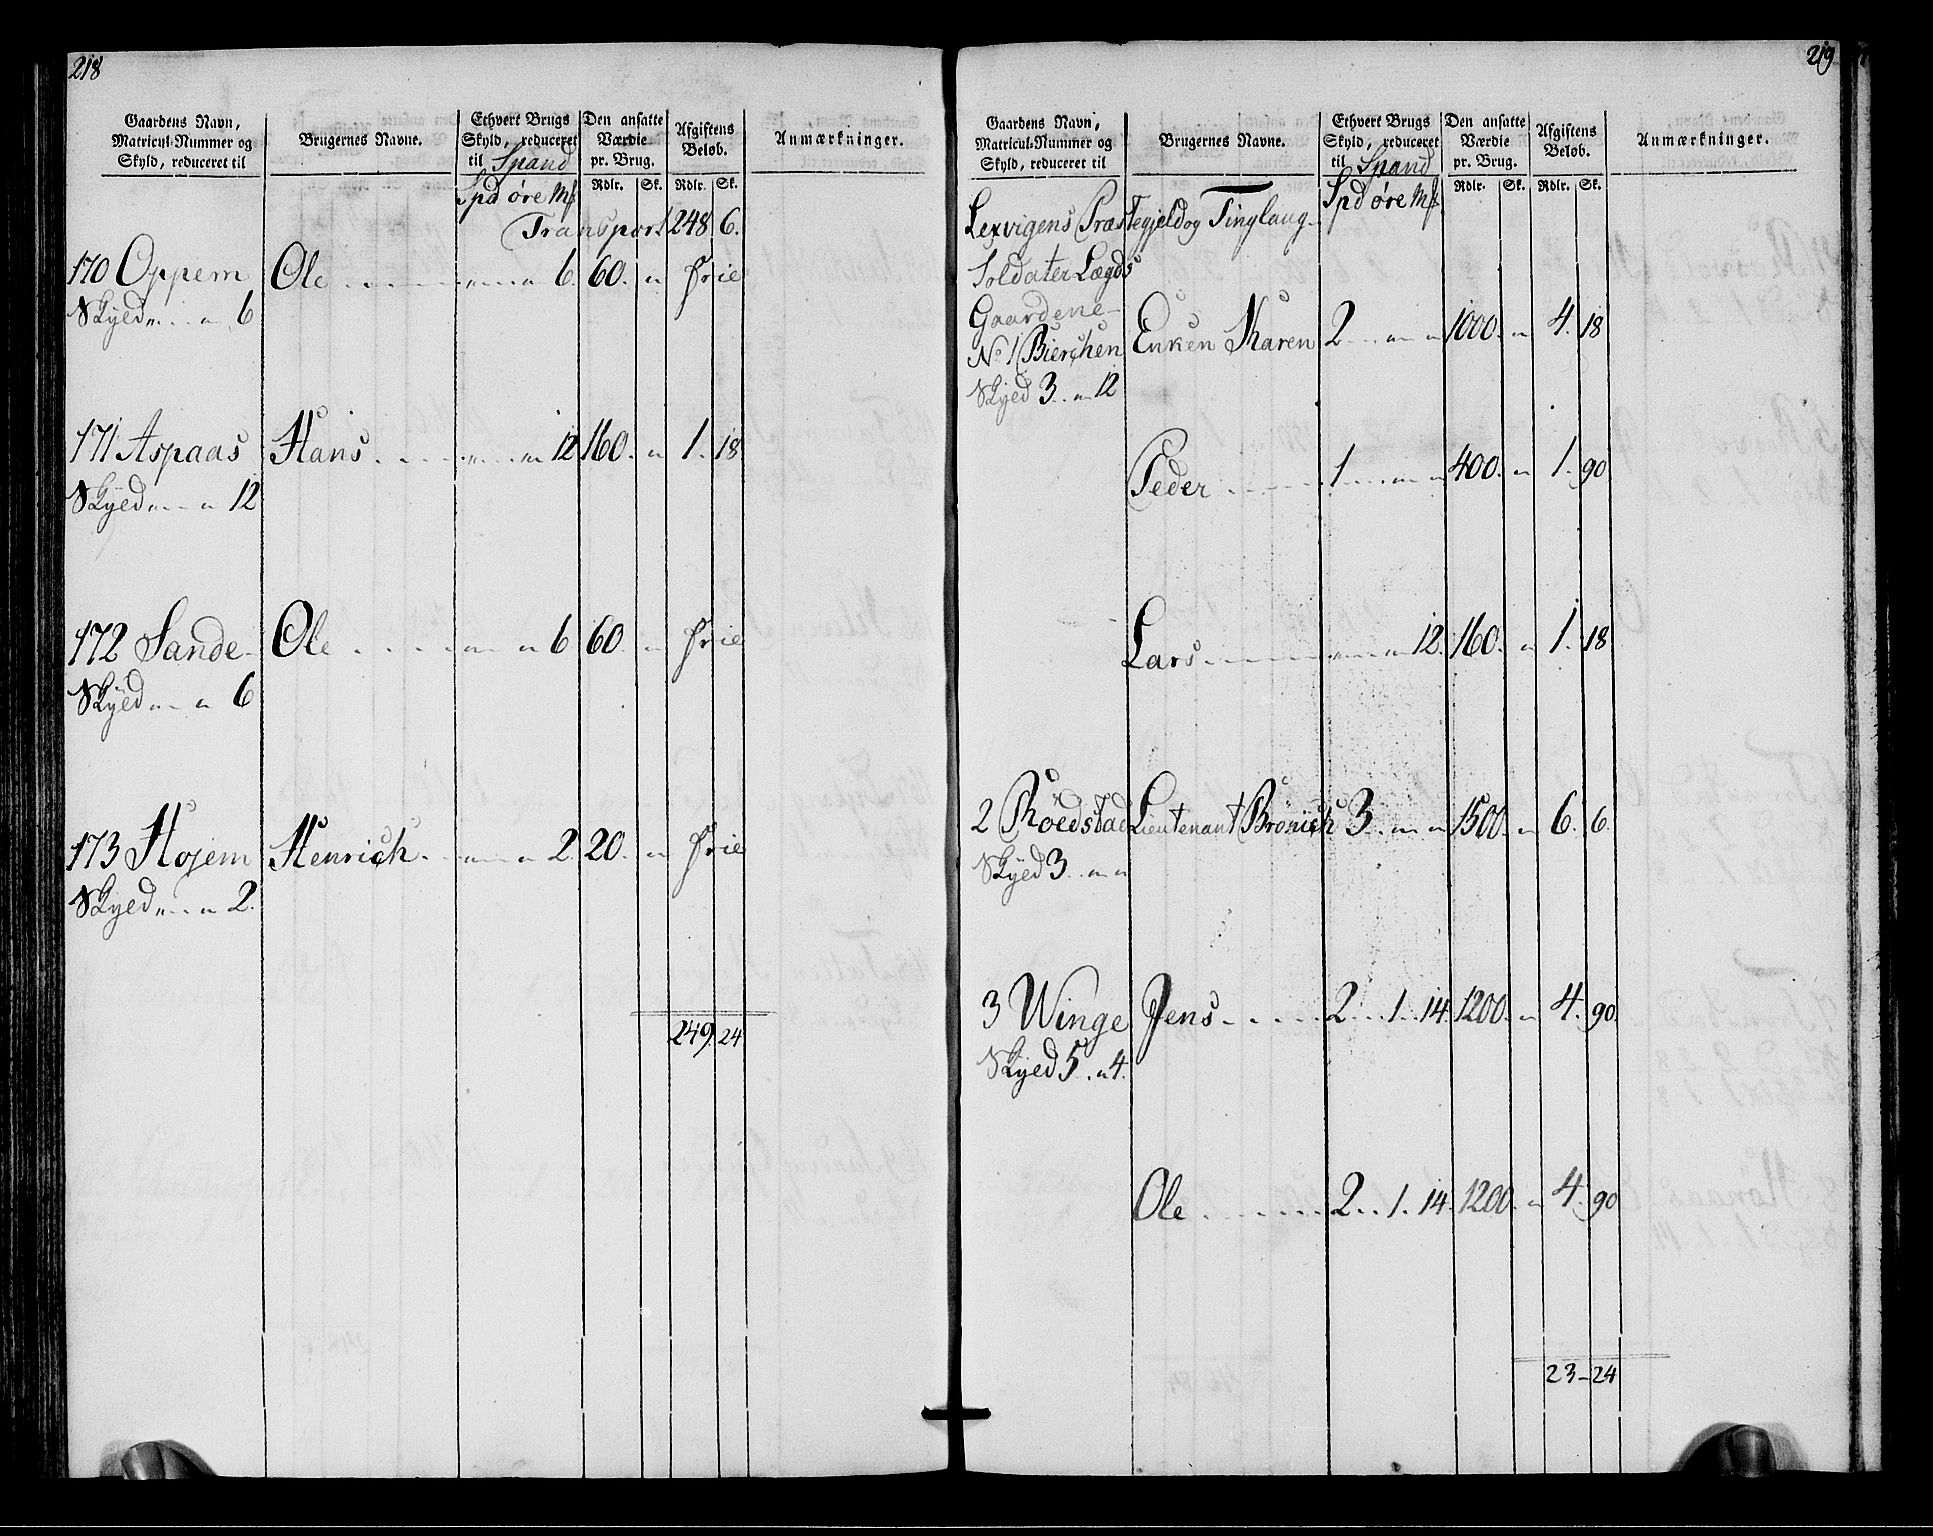 218
Gaardens Navn, Matricul-Nummer og Skyld, reduceret til | Brugernes Navne. | Ethvert Brugs Skyld, reduceret til Spand | Den ansatte Værdie pr. Brug. | Afgiftens Beløb. | Anmærkninger.
Spd øre Mk | Rdlr. | Sk. | Rdlr. | Sk.
Transport 248 6.
170 Oppem | Ole | " " 6. | 60. " | frie
Skyed " " 6
171 Aspaas | Hans | " " 12 | 160. " | 1. 18
Skyed " " 12
172 Sande | Ole | " " 6 | 60. " | frie
Skyed " " 6
173 Hojem | Henrich | " " 2. | 20. " | frie
Skyed " " 2.
249. 24
219
Gaardens Navn, Matricul-Nummer og Skyld, reduceret til | Brugernes Navne. | Ethvert Brugs Skyld, reduceret til Spand | Den ansatte Værdie pr. Brug. | Afgiftens Beløb. | Anmærkninger.
Spd øre Mk | Rdlr. | Sk. | Rdlr. | Sk.
Lexvigens Præstegjeld og Tinglaug
Soldater Lægds
Gaardene
No 1 Bierchen | Enken Karen | 2 " " | 1000. " | 4. 18
Skyed 3. " 12
Peder | 1 " " | 400. " | 1. 90
Lars | " " 12. | 160. " | 1. 18
2 Röedstad | Lieutenant Brönich | 3. " " | 1500. " | 6. 6.
Skyed 3. " "
3 Winge | Jens | 2. 1. 14. | 1200. " | 4. 90.
Skyed 5. " 4.
Ole | 2. 1. 14. | 1200. " | 4. 90
23-24